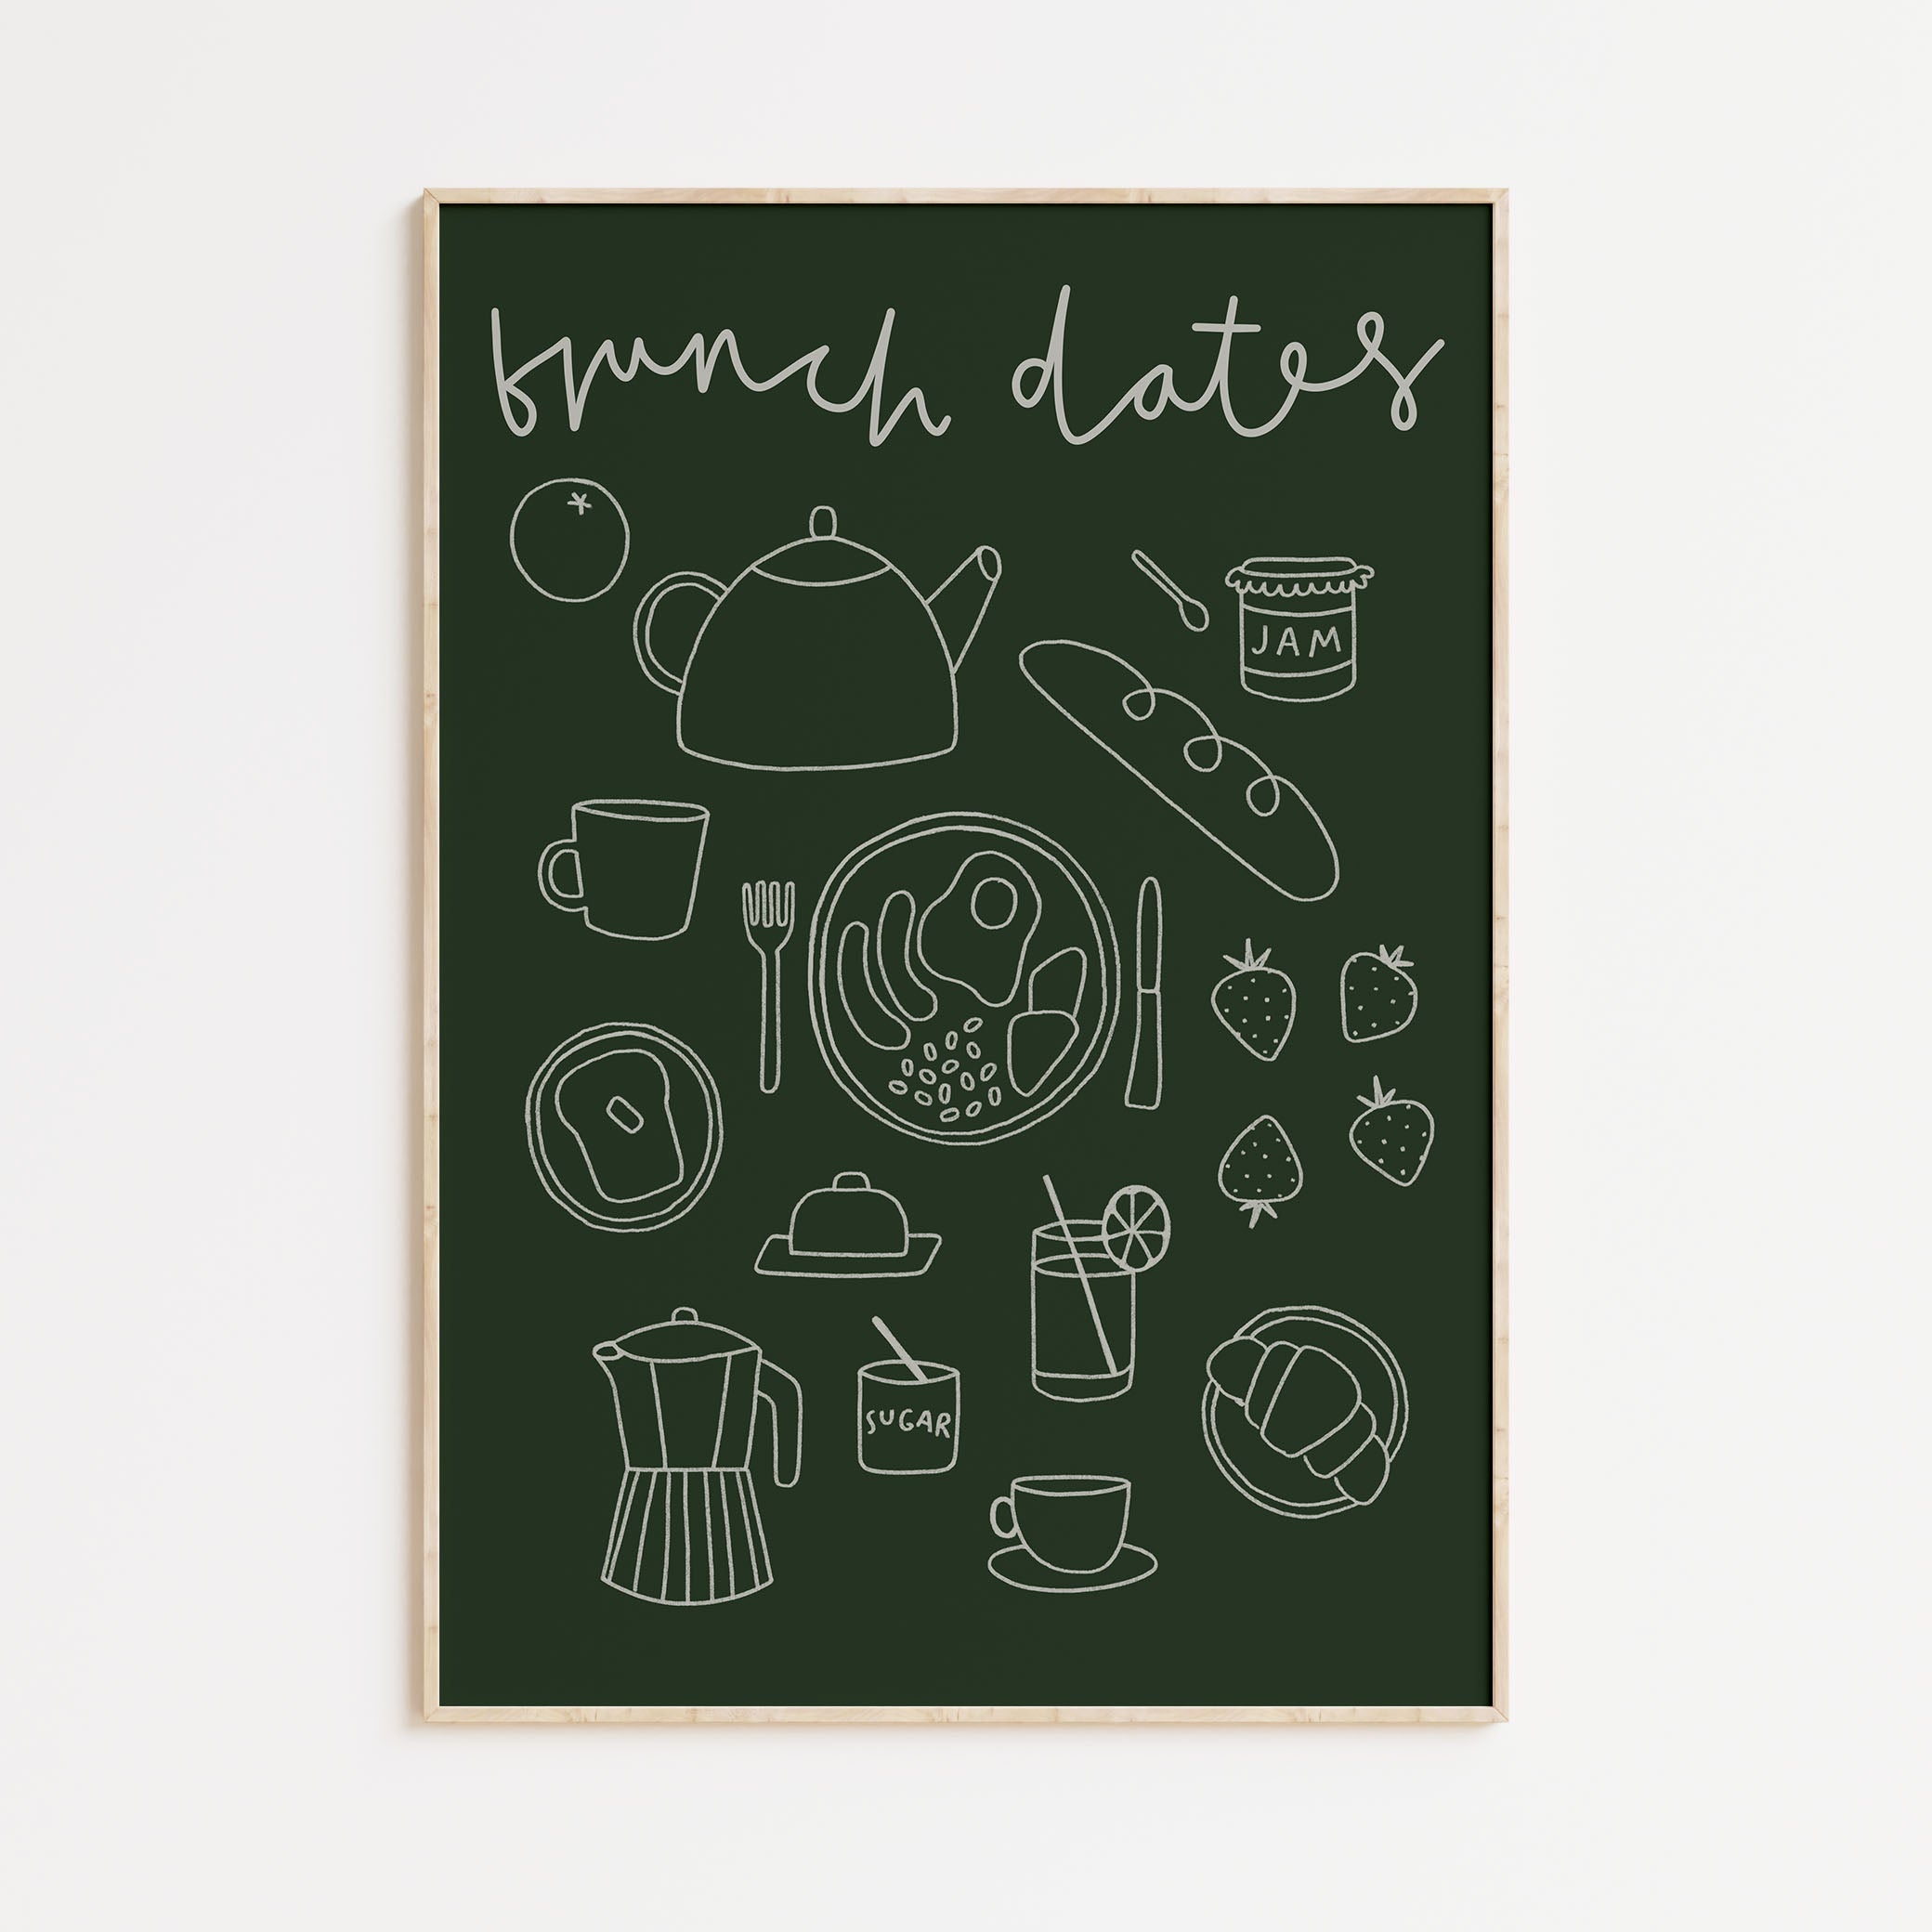 brunch dates
JAM
SUGAR